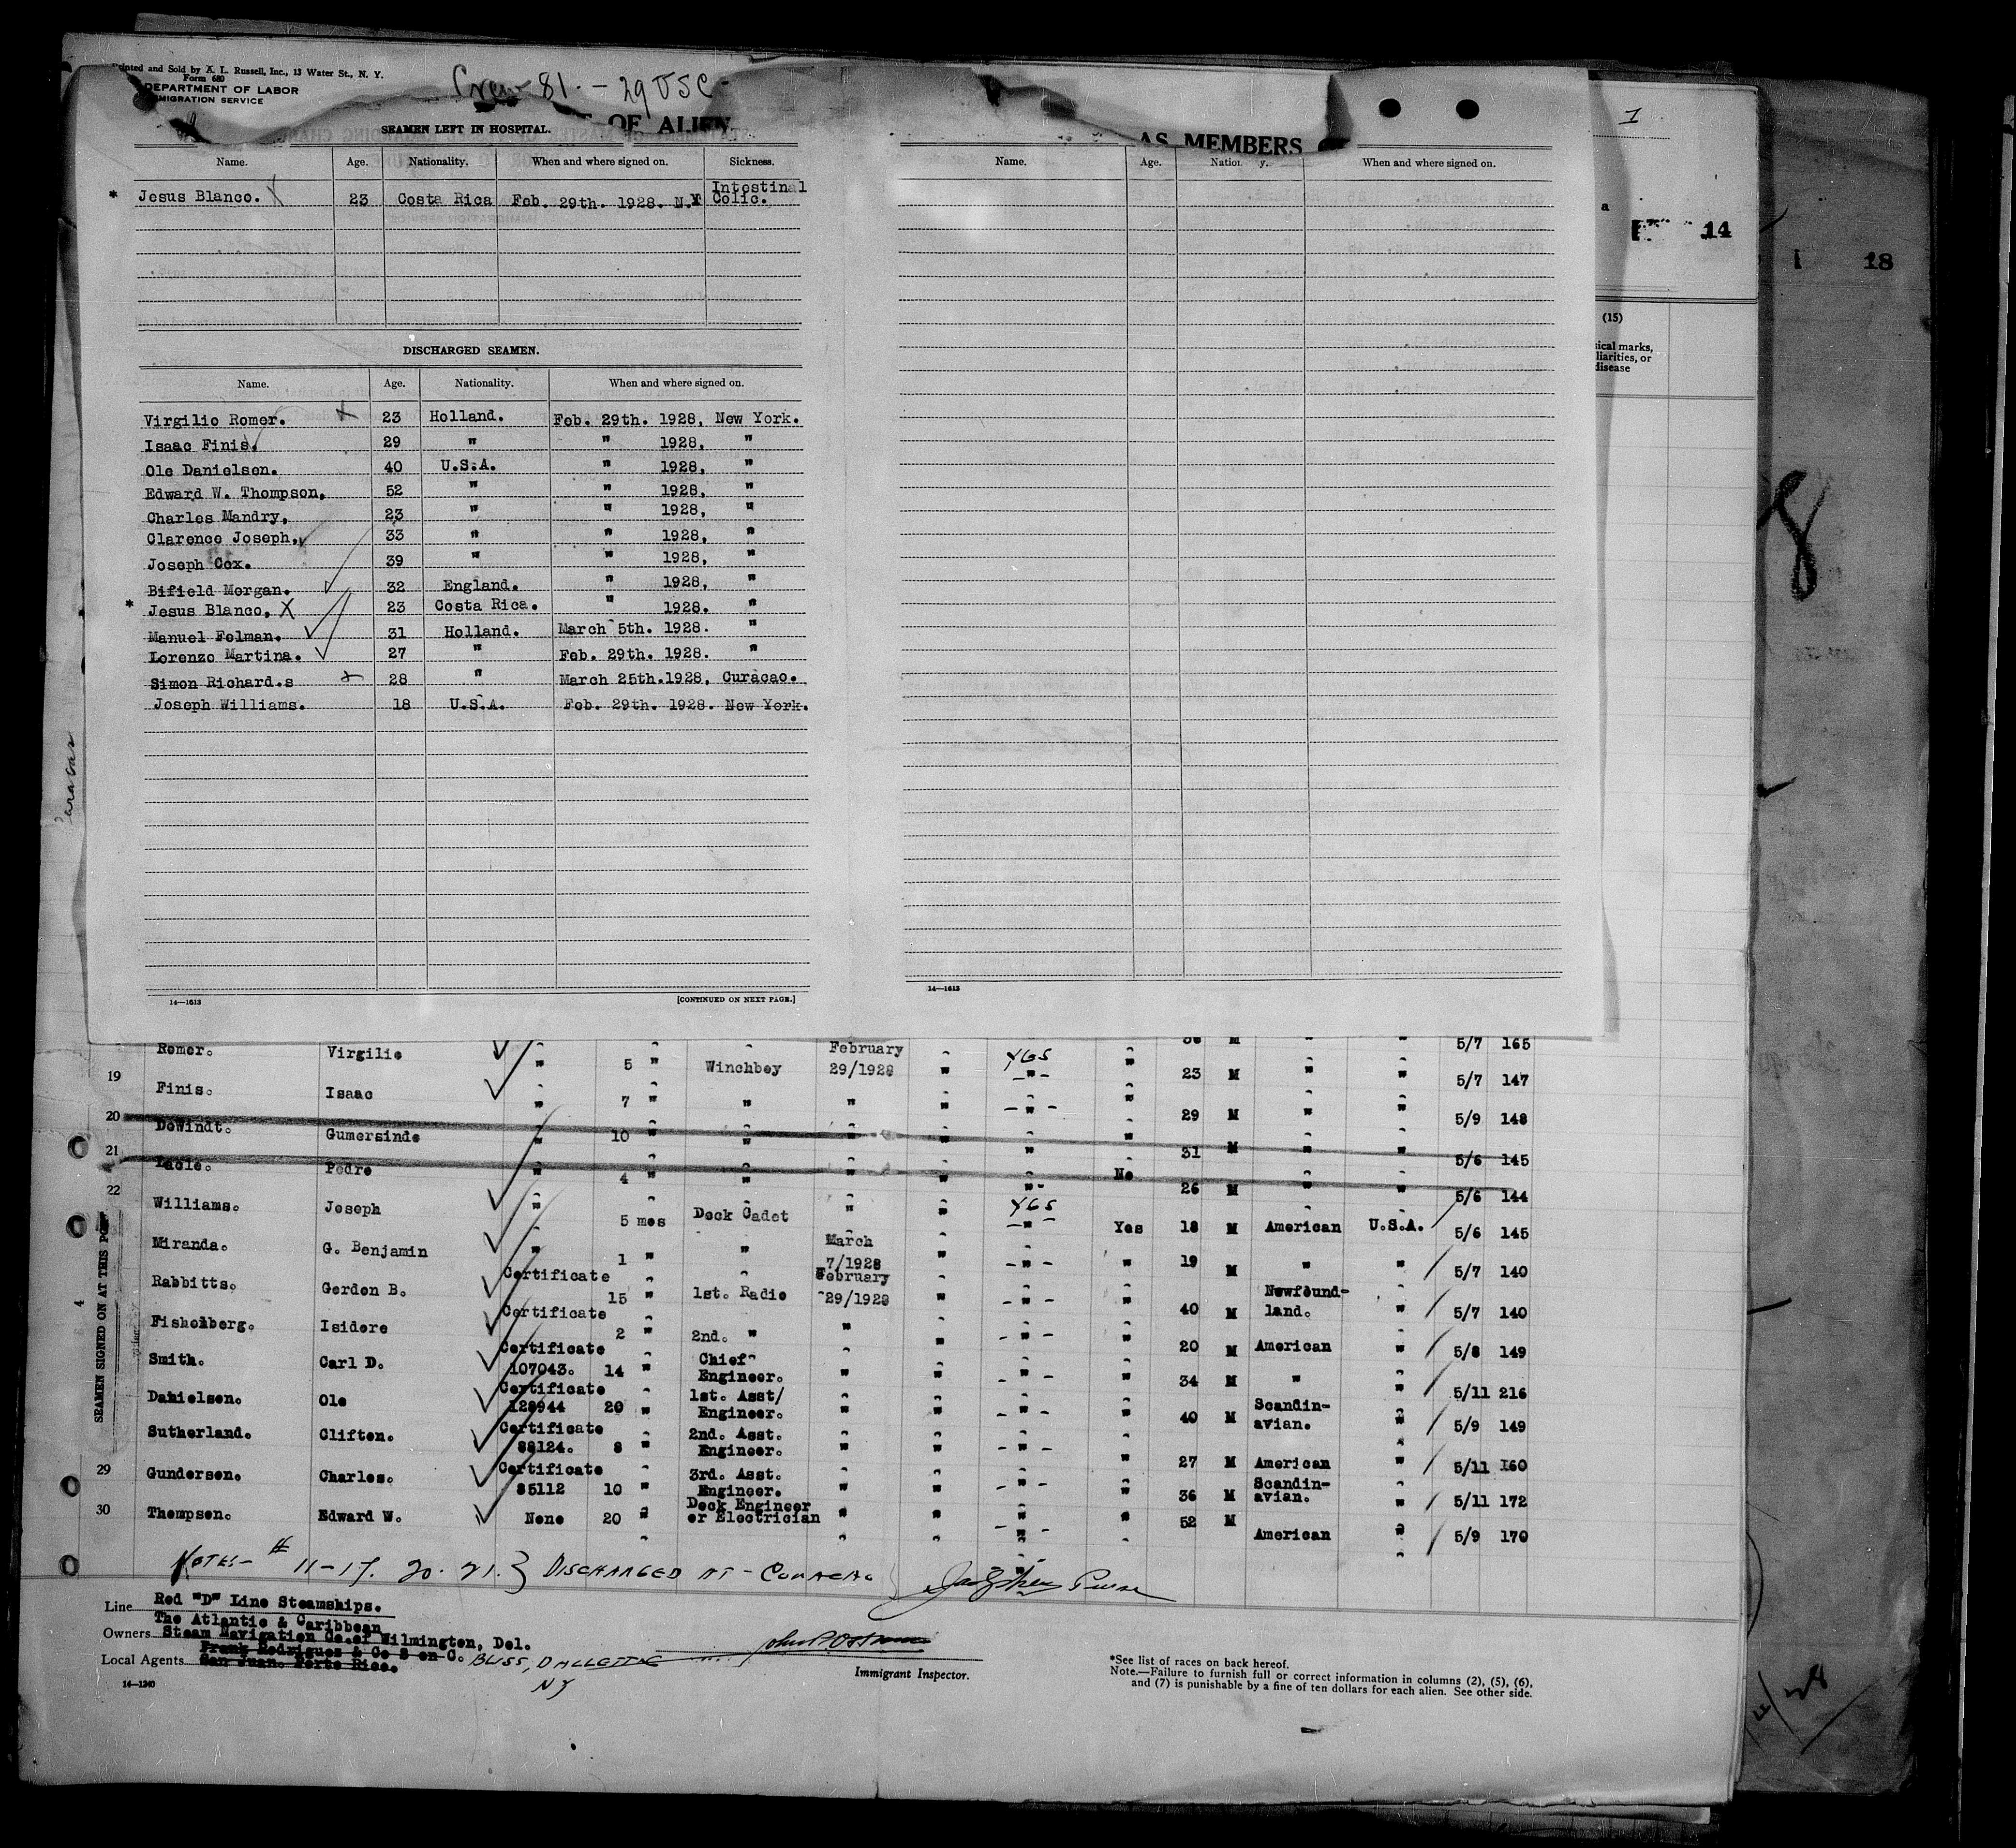 Printed and Sold by A. L. Russell, Inc., 13 Water St., N. Y.
Form 680
DEPARTMENT OF LABOR
IMMIGRATION SERVICE
Crew 81 - 29 USC -
OF ALIEN
AS MEMBERS
1
SEAMEN LEFT IN HOSPITAL.
Name. Age. Nationality. When and where signed on. Sickness.
* Jesus Blanco. X 23 Costa Rica Feb. 29th. 1928. N.Y Intestinal Colic.
Name. Age. When and where signed on.
a
14
18
(15)
ical marks,
liarities, or
disease
DISCHARGED SEAMEN.
Name. Age. Nationality. When and where signed on.
Virgilio Romer. X 23 Holland. Feb. 29th. 1928, New York.
Isaac Finis. 29 " " 1928, "
Ole Danielsen. 40 U.S.A. " 1928, "
Edward W. Thompson. 52 " " 1928, "
Charles Mandry. 23 " " 1928, "
Clarence Joseph. 33 " " 1928, "
Joseph Cox. 39 " " 1928, "
Bifield Morgan. 32 England. " 1928, "
* Jesus Blanco. X 23 Costa Rica. " 1928. "
Manuel Felman. 31 Holland. March 5th. 1928. "
Lorenzo Martina. 27 " Feb. 29th. 1928. "
Simon Richard.s 28 " March 25th.1928, Curacao.
Joseph Williams. 18 U.S.A. Feb. 29th. 1928. New York.
8
14—1613 [CONTINUED ON NEXT PAGE.]
14—1613
M " " 5/7 165
Romer. Virgilio " 5 " Winchboy February 29/1928 " yes " 23 M " " 5/7 147
19 Finis. Isaac " 7 " " " " - " - " 29 M " " 5/9 148
20 DeWindt. Gumersinde " 10 " " " " " " 31 M " " 5/6 145
21 Lacle. Pedro " 4 " " " " " No 26 M " " 5/6 144
22 Williams. Joseph " 5 mos Deck Cadet " " yes Yes 18 M American U.S.A. 5/6 145
Miranda. G. Benjamin " 1 " " March 7/1928 " - " - " 19 M " " 5/7 140
Rabbitts. Gordon B. Certificate 15 " 1st. Radio February 29/1928 " - " - " 40 M Newfound-land. " 5/7 140
Fishelberg. Isidore Certificate 2 " 2nd. " " " - " - " 20 M American " 5/8 149
Smith. Carl D. Certificate 107043. 14 " Chief Engineer. " " - " - " 34 M " " 5/11 216
Danielsen. Ole Certificate 128944 20 " 1st. Asst/ Engineer. " " - " - " 40 M Scandin-avian. " 5/9 149
Sutherland. Clifton. Certificate 88124. 8 " 2nd. Asst. Engineer. " " - " - " 27 M American " 5/11 160
29 Gundersen. Charles. Certificate 85112 10 " 3rd. Asst. Engineer. " " - " - " 36 M Scandin-avian. " 5/11 172
30 Thompson. Edward W. None 20 " Deck Engineer or Electrician " " - " - " 52 M American " 5/9 170
4 SEAMEN SIGNED ON AT THIS PORT
NOTE:- # 11-17. 20. 21. } DISCHARGED AT - CURACAO
Line Red "D" Line Steamships.
Owners The Atlantic & Caribbean Steam Navigation Co.of Wilmington, Del.
Local Agents Frank Rodriguez & Co S en C. San Juan. Porto Rico. BLISS, DALLETT & Co
NY
Immigrant Inspector.
14—1240
*See list of races on back hereof.
Note.—Failure to furnish full or correct information in columns (2), (5), (6),
and (7) is punishable by a fine of ten dollars for each alien. See other side.